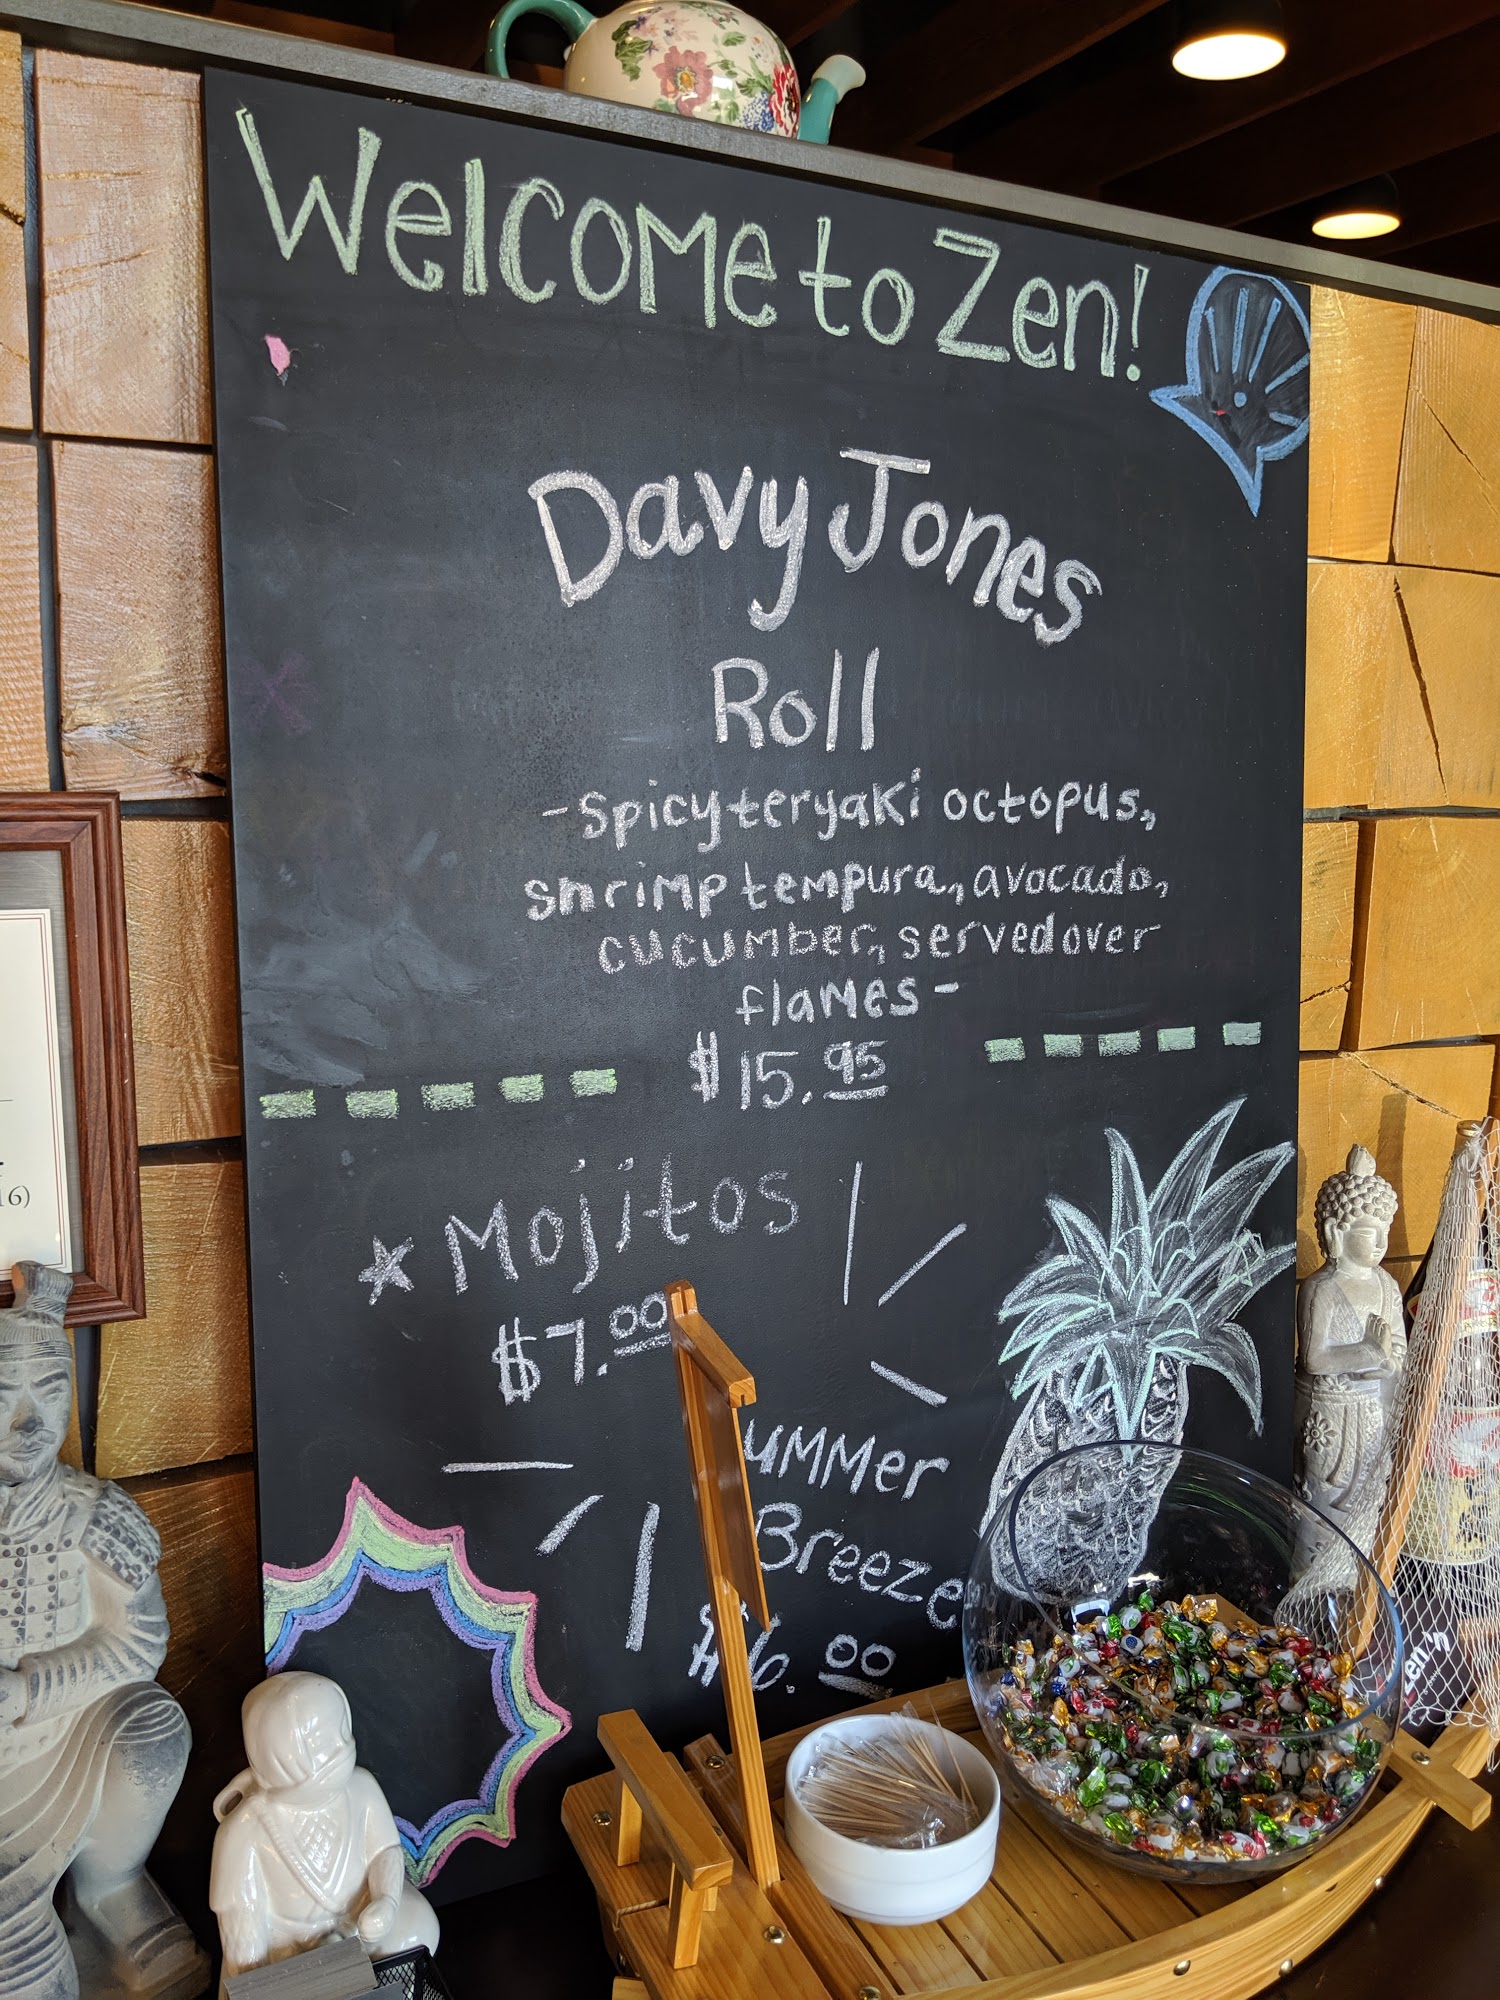 Welcome to Zen!
Davy Jones
Roll
- Spicy teryaki octopus,
shrimp tempura, avocado,
cucumber, served over
flames -
$15.95
Mojitos
$7.00
ummer
Breeze
$6.00
16)
Zen'n